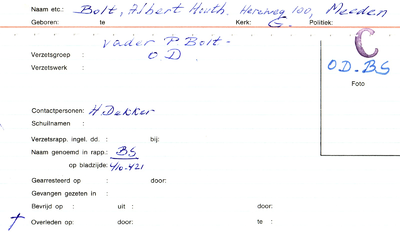 Naam etc.: Bolt, Albert Hiuth. Hereweg 100, Meeden
Geboren: te Kerk: G. Politiek:
vader P Bolt -
Verzetsgroep : O D
Verzetswerk :
C
O.D.-BS
Foto
Contactpersonen: H Dekker
Schuilnamen :
Verzetsrapp. ingel. dd.: bij:
Naam genoemd in rapp.: BS
op bladzijde: 410-421
Gearresteerd op : door:
Gevangen gezeten in :
Bevrijd op : uit : door:
Overleden op: door: te :